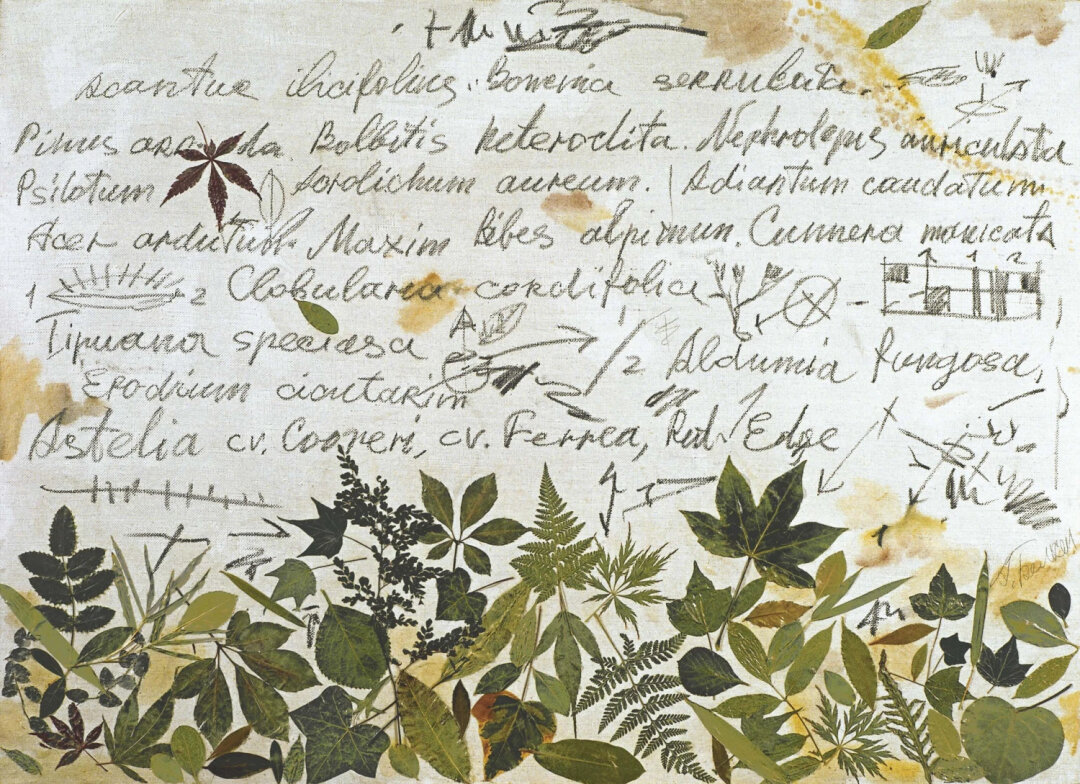 acantue ilicifolius. Bowenia serrulata.
Pinus Bolbitis heteroclita. Nephrolepis auriculata
Psilotum aureum. Adiantum caudatum
Acer Maxim Ribes alpinum. Cunnera manicata
1 2 Clobularia cordifolia 1 2
Tipuana speciasa /2 Aldumia Fungosa,
Erodium cicutarium
Astelia cv. Cooperi, cv. Ferrea, Rub. Edge